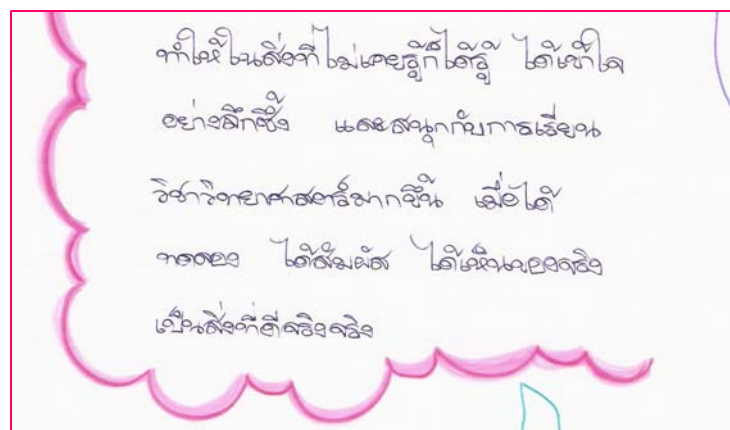 ทำให้ในสิ่งที่ไม่เคยรู้ก็ได้รู้ ได้เข้าใจ
อย่างลึกซึ้ง และสนุกกับการเรียน
วิชาวิทยาศาสตร์มากขึ้น เมื่อได้
ทดลอง ได้สัมผัส ได้เห็นของจริง
เป็นสิ่งที่ดีจริงจริง